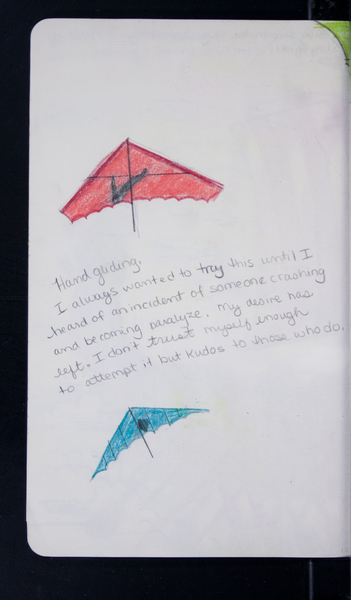 Hand gliding.
I always wanted to try this until I
heard of an incident of someone crashing
and becoming paralyze. My desire has
left. I don't trust myself enough
to attempt it but Kudos to those who do.